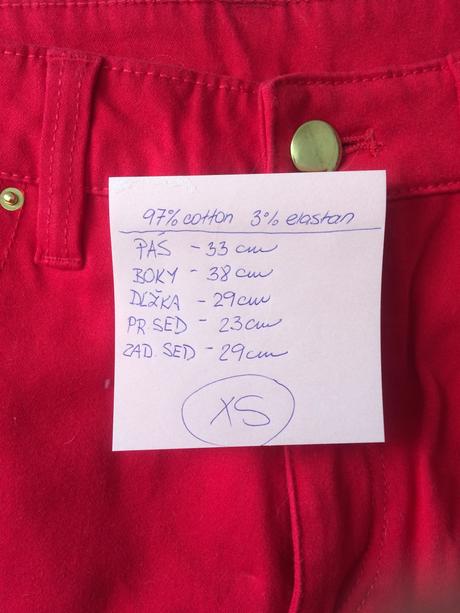 97% cotton 3% elastan
PÁS - 33 cm
BOKY - 38 cm
DĹŽKA - 29cm
PR. SED - 23cm
ZAD. SED - 29cm
XS